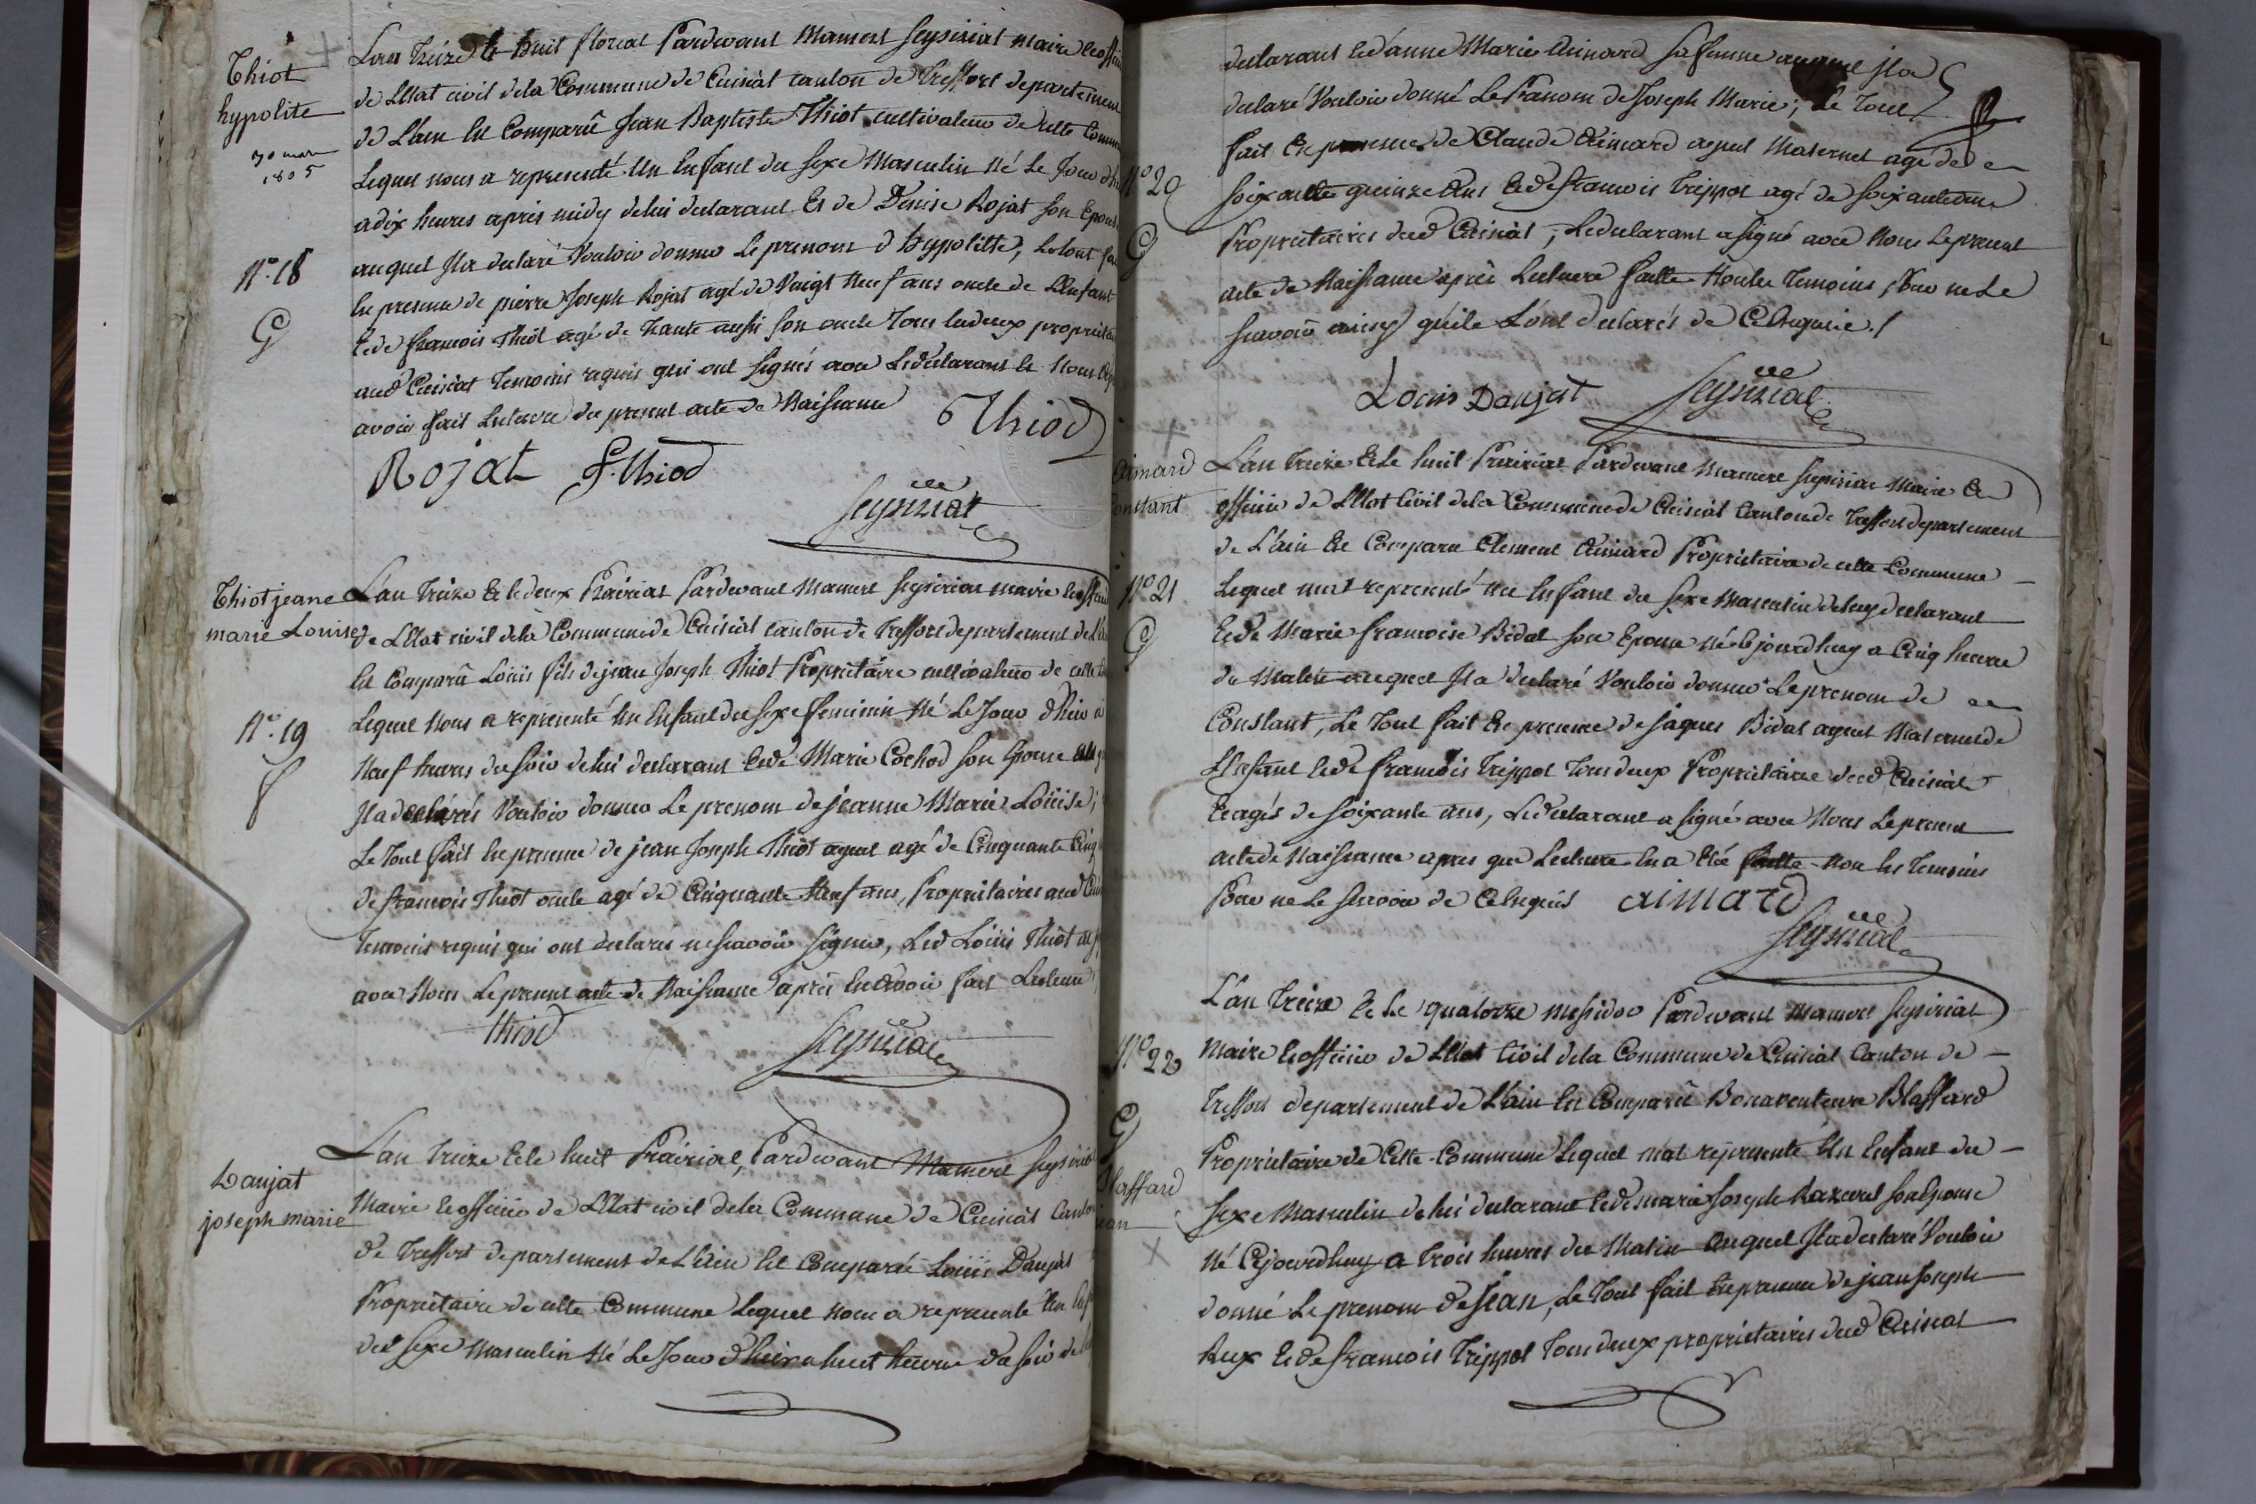 Thiot
hypolite
30 mars
1805
N.º 18
G
L'an treize le huit floreal Pardevant Mamert Seyssiriat Maire et offi
de L'Etat civil de la Commune de Cuisiat canton de Treffort departement
de L'ain Est Comparû Jean Baptiste Thiot cultivateur de cette Commu
Lequel nous a representé Un Enfant du Sexe Masculin Né Le Jour d'h
a dix heures apres midy de lui declarant Et de Denise Rojat son Epous
auquel Il a declaré Vouloir donner Le prenom d'hyppolitte, Le tout f
En presence de pierre Joseph Rojat agé de Vaigt Neuf ans oncle de L'Enfant
Et de francois Thiot agé de Trante aussi son oncle Tous les deux proprieta
aud Cuisiat Temoins requis qui ont signés avec Le declarant et Nous
avoir fait Lecture du present acte de Naissance
Thiod
Rojat f. Thiod
Seyssiriat
Thiot jeane
marie Louise
N.º 19
f
L'an Treize Et le deux Prairial Pardevant Mamert Seyssiriat maire et offi
de L'Etat civil de la Commune de Cuisiat canton de Treffort departement de L'
Est Comparû Louis fils de jean Joseph Thiot Proprietaire cultivateur de cette
Lequel Nous a representé Un Enfant du Sexe feminin Né Le Jour d'hier a
Neuf heures du soir de lui declarant Et de Marie Cochod son Epouse
Il a declarés Vouloir donner Le prenom de jeanne Marie Loüise;
Le Tout fait En presence de jean Joseph Thiot ayeul agé de Cinquante Cinq
de francois Thiot oncle agé de Cinquante Neuf ans, Proprietaires aud
Temoins requis qui ont declarés ne scavoir signer, Led Loüis Thiot
avec Nous Le present acte de Naissance après En avoir fait Lecture
thiod
Seyssiriat
Daujat
joseph marie
L'an Treize Et le huit Prairial, Pardevant Mamert Seyssiriat
Maire Et officier de L'Etat civil de la Commune de Cuisiat Canton
de Treffort departement de L'ain Est Comparû Loüis Daujat
Proprietaire de cette Commune Lequel nous a representé Un
du Sexe Masculin Né Le Jour d'hier a huit heures du soir de
N.º 20
G
declarant Et d'anne Marie Aimard sa femme auquel Il a
declaré Vouloir donné Le Prenom de Joseph Marie; Le Tout
fait En presence de Claude Aimard ayeul Maternel agé de
soixante quinze ans Et de francois Trippot agé de soixante ans
Proprietaires dud Cuisiat; Le declarant a signé avec Nous Le present
acte de Naissance après Lecture faitte Non les Temoins Pour ne Le
scavoir ainsy qu'ils L'ont declarés de Ce Enquis./
Louis Daujat Seyssiriat
Aimard
Constant
N.º 21
G
L'an Treize Et le huit Prairial Pardevant Mamert Seyssiriat Maire Et
officier de L'Etat Civil de la Commune de Cuisiat Canton de Treffort departement
de L'ain Est Comparu Clement Aimard Proprietaire de cette Commune
Lequel m'at representé Un Enfant du Sexe Masculin de luy declarant
Et de Marie francoise Bidat son Epouse Né Cejourdhuy a Cinq heures
du Matin auquel Il a declaré Vouloir donner Le prenom de
Constant, Le Tout fait En presence de jaques Bidat ayeul Maternel de
L'Enfant Et de francois Trippot Tous deux Proprietaires dud Cuisiat
Et agés de soixante ans, Le declarant a signé avec Nous Le present
acte de Naissance apres que Lecture En a Eté faitte Non les Temoins
Pour ne Le scavoir de Ce Enquis aimard
Seyssiriat
N.º 22
G
Blaffard
jean
L'an Treize Et Le quatorze messidor Pardevant Mamert Seyssiriat
Maire Et officier de L'Etat Civil de la Commune de Cuisiat Canton de
Treffort departement de L'ain Est Comparû Bonaventure Blaffard
Proprietaire de Cette Commune Lequel m'at representé Un Enfant du
Sexe Masculin de lui declarant Et de marie Joseph son Epouse
Né Cejourdhuy a Trois heures du Matin auquel Il a declaré Vouloir
donné Le prenom de jean, Le Tout fait En presence de jean Joseph
Rux Et de francois Trippot Tous deux proprietaires dud Cuisiat